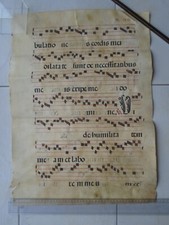 bulatio nes cordis mei
dilatate sunt de necessitatibus
me is eripe me do
mi ne
de humilita tem
me am et labo
rem meum